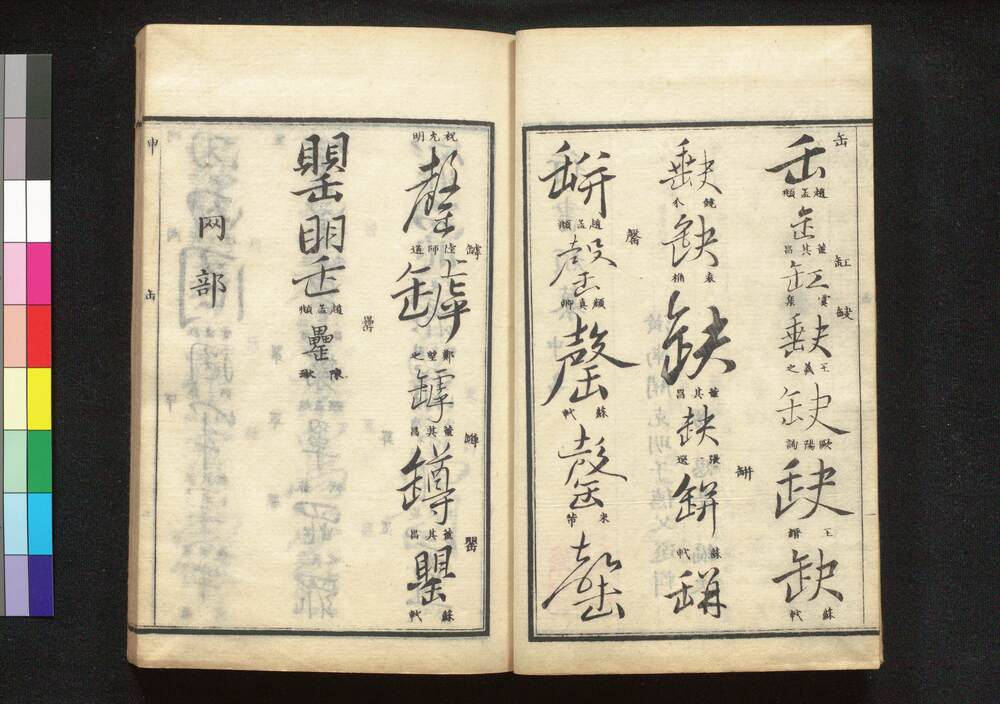 缶
缶
趙孟頫
缶
董其昌
缸
缸
虞集
缺
缺
王羲之
缺
歐陽詢
缺
缺
蘇軾
缺
缺
袁桷
缺
董其昌
缺
缾
缾
蘇軾
缾
缾
趙孟頫
罄
罄
顏真卿
罄
蘇軾
罄
米芾
罄
祝允明
罄
陸師道
罅
罅
鄭望之
罅
董其昌
罇
罇
董其昌
罌
罌
蘇軾
罌
罌
趙孟頫
罍
罍
网部
申
缶